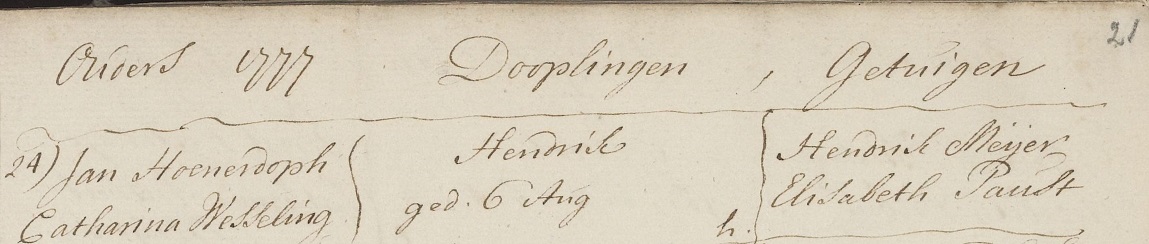 21
Ouders 1777 Dooplingen , Getuigen
24) Jan Hoenerdoph Hendrik Hendrik Meijer
Catharina Wesseling ged. 6 Aug h. Elisabeth Paust